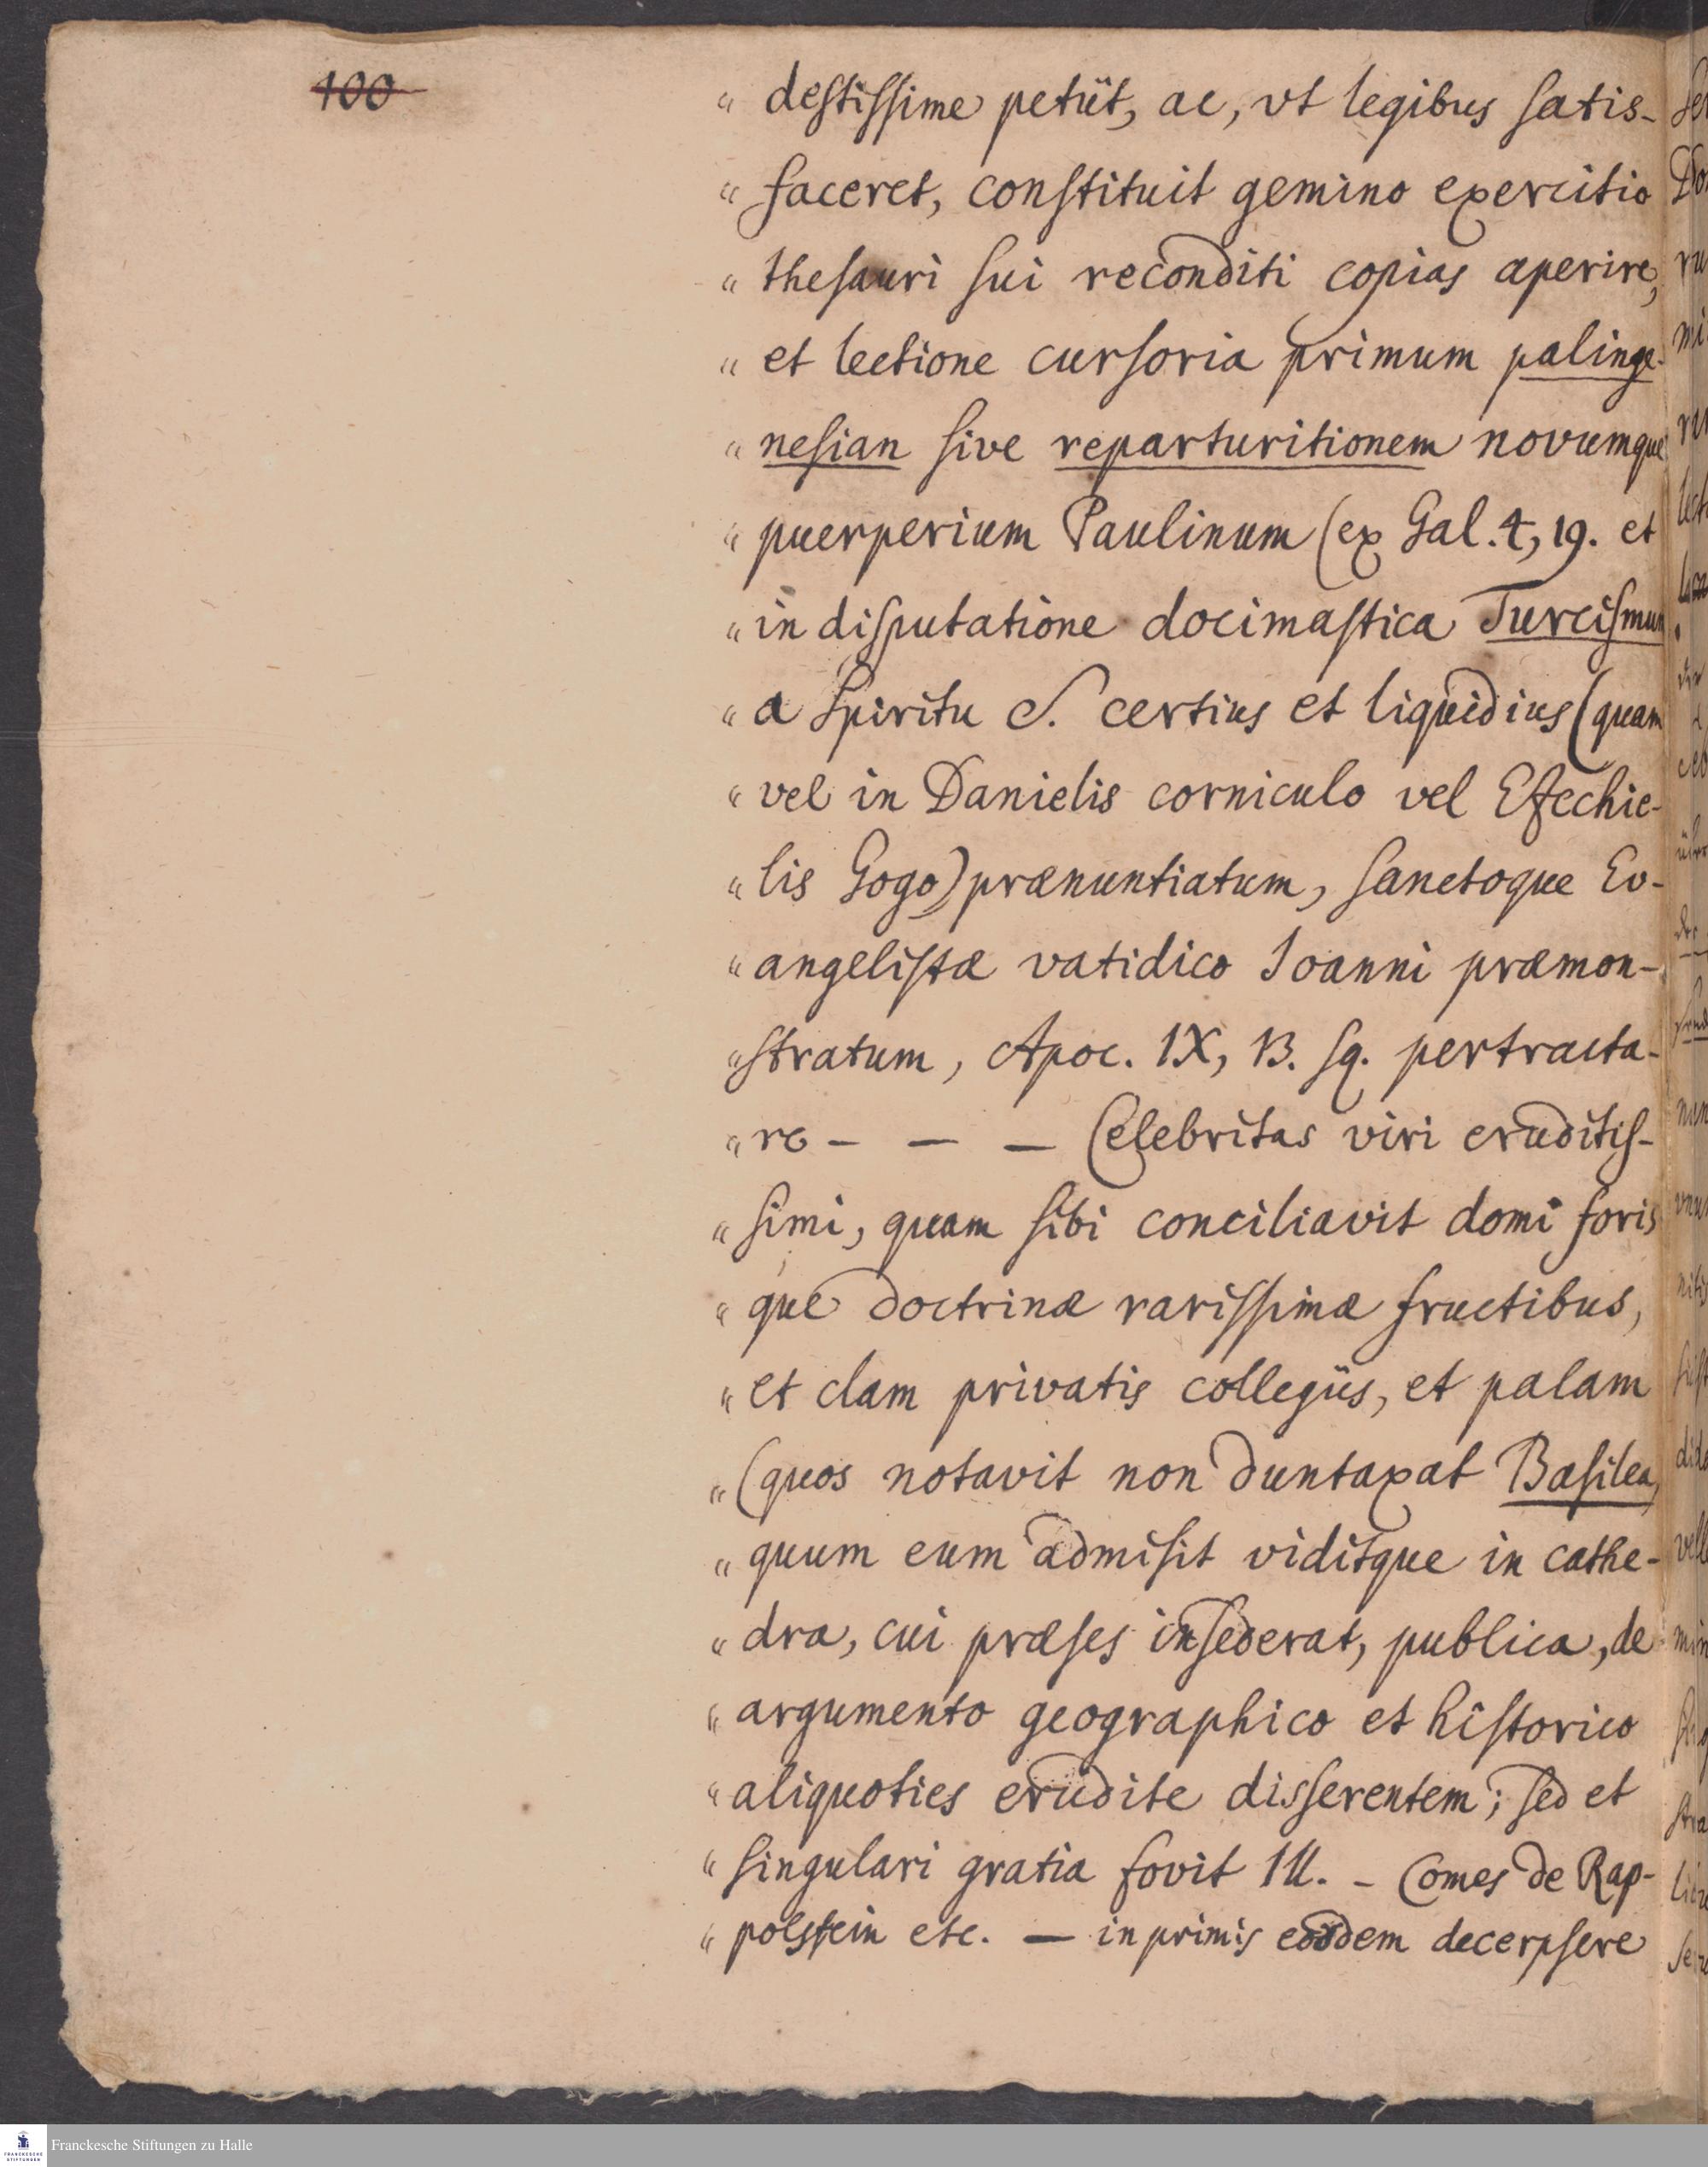 100
„ destissime petiit, ac, vt legibus satis-
„ faceret, constituit gemino exercitio
„ thesauri sui reconditi copias aperire,
„ et lectione cursoria primum palinge-
„ nesian sive reparturitionem novumque
„ puerperium Paulinum (ex Gal. 4, 19. et
„ in disputatione docimastica Turcismum
„ a Spiritu S. certius et liquidius (quam
„ vel in Danielis corniculo vel Ezechie-
„ lis Gogo) prænuntiatum, sanctoque Ev-
„ angelistæ vatidico Ioanni præmon-
„ stratum, Apoc. IX, 13. sq. pertracta-
„ re – – – Celebritas viri eruditis-
„ simi, quam sibi conciliavit domi foris
„ que doctrinæ rarissimæ fructibus,
„ et clam privatis collegiis, et palam
„ (quos notavit non duntaxat Basilea,
„ quum eum admisit viditque in cathe-
„ dra, cui præses insederat, publica, de
„ argumento geographico et historico
„ aliquoties erudite disserentem; sed et
„ singulari gratia fovit Ill. – Comes de Rap-
„ polstein etc. – in primis eosdem decerpsere
Franckesche Stiftungen zu Halle